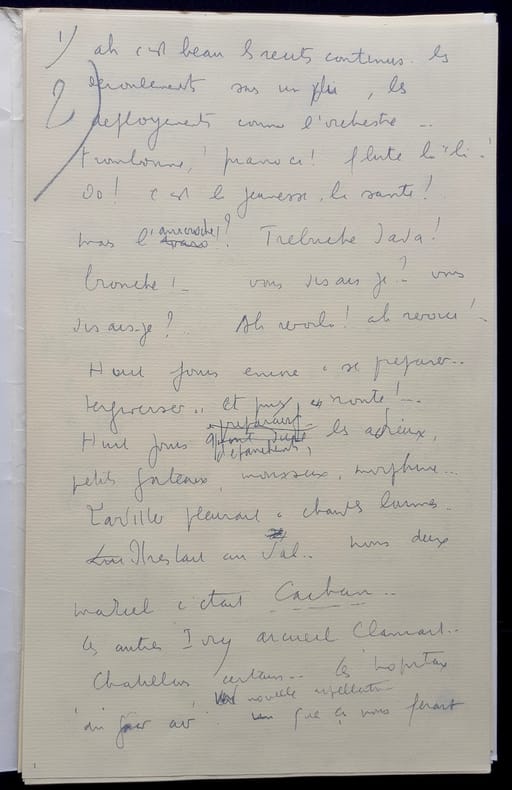 1) ah c'est beau les recits contenus. les
2) deroulements sans un pli, les
deployements comme l'orchestre...
trombonne,! piano ci! flute la "li!
Do! c'est la jeunesse, la sante!
mais l'anicroche!? Trebuche Java!
bronche!.. vous disais je? vous
disais-je? Ah revoila! ah revoici!..
Huit jours encore a se preparer..
tergiverser.. Et puis, en route!..
preparatifs
Huit jours les adieux,
epanchements,
petits gateaux, mousseux, morphine...
pleurait a chaudes larmes..
restait au Val.. nous deux
c'etait Cachan...
les autres Ivry arcueil Clamart..
Chatillon certains... les hopitaux
nouvelle appellation
que ça nous ferait